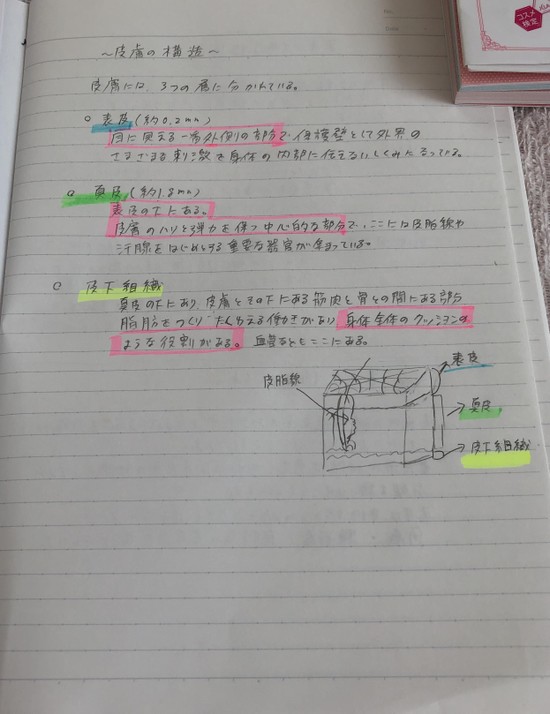 コスメ
検定
～皮膚の構造～
皮膚には、3つの層に分かれている。
○ 表皮(約0.2mm)
目に見える一番外側の部分で保護壁として外界の
さまざまな刺激を身体の内部に伝えるしくみになっている。
○ 真皮(約1.8mm)
表皮の下にある。
皮膚のハリと弾力を保つ中心的な部分で、ここには皮脂線や
汗腺をはじめとする重要な器官が集まっている。
○ 皮下組織
真皮の下にあり、皮膚とその下にある筋肉と骨との間にある部分
脂肪をつくりたくわえる働きがあり、身体全体のクッションの
ような役割がある。血管などもここにある。
表皮
皮脂線
真皮
皮下組織